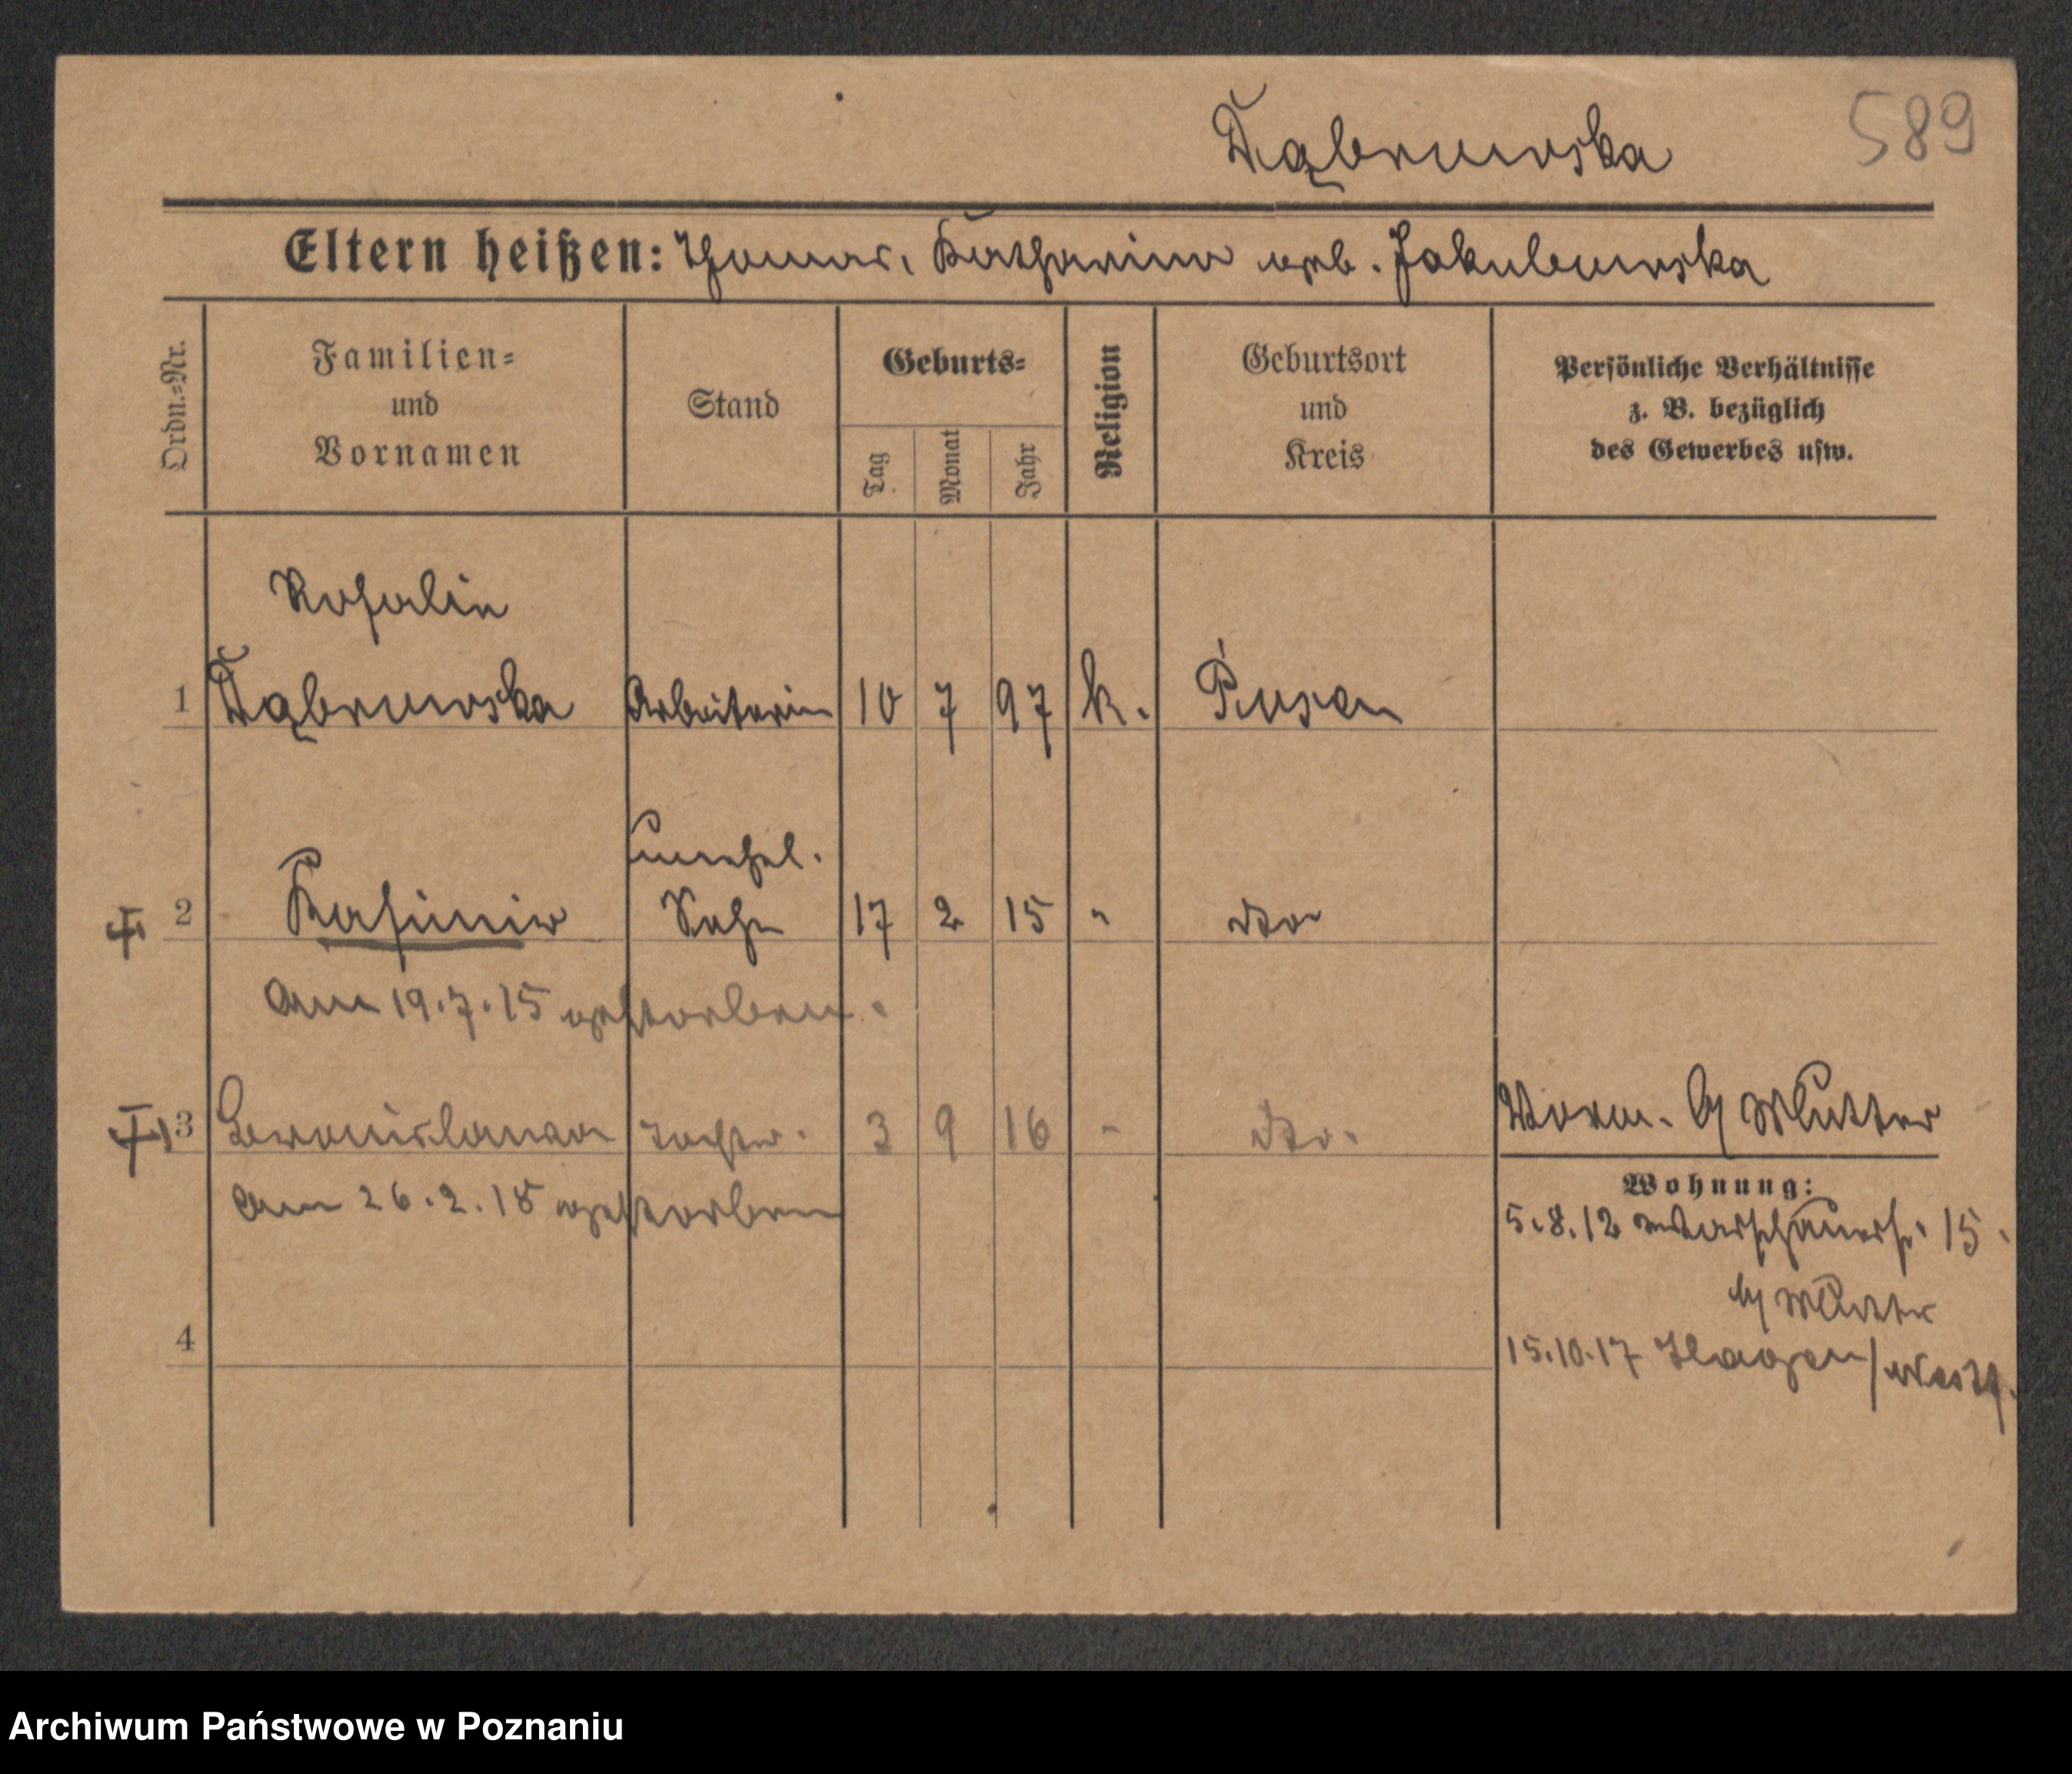 Dąbrowska
589
Eltern heißen: Thomas, Katharina geb. Jakubowska
Ordn.=Nr.
Familien=
und
Vornamen
Stand
Geburts=
Tag
Monat
Jahr
Religion
Geburtsort
und
Kreis
Persönliche Verhältnisse
z. B. bezüglich
des Gewerbes usw.
Rosalie
1 Dąbrowska Arbeiterin 10 7 97 k. Posen
unehel.
2 Kasimir Sohn 17 2 15 " dto
am 19.7.15 gestorben.
3 Bronislawa Tochter. 3 9 16 " dto. Vorm. Mutter
am 26.2.18 gestorben
Wohnung:
5.8.12 Warschauerstr. 15.
Mutter
4
15.10.17 Hagen / Westf.
Archiwum Państwowe w Poznaniu